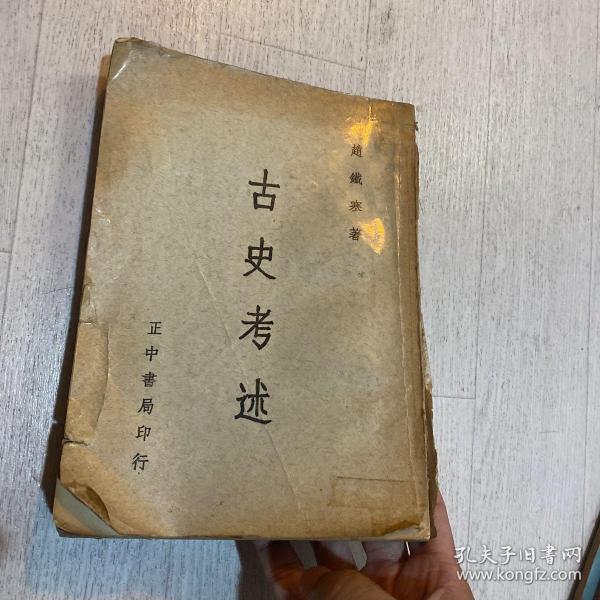 趙鐵寒著
古史考述
正中書局印行
孔夫子旧书网
www.kongfz.com